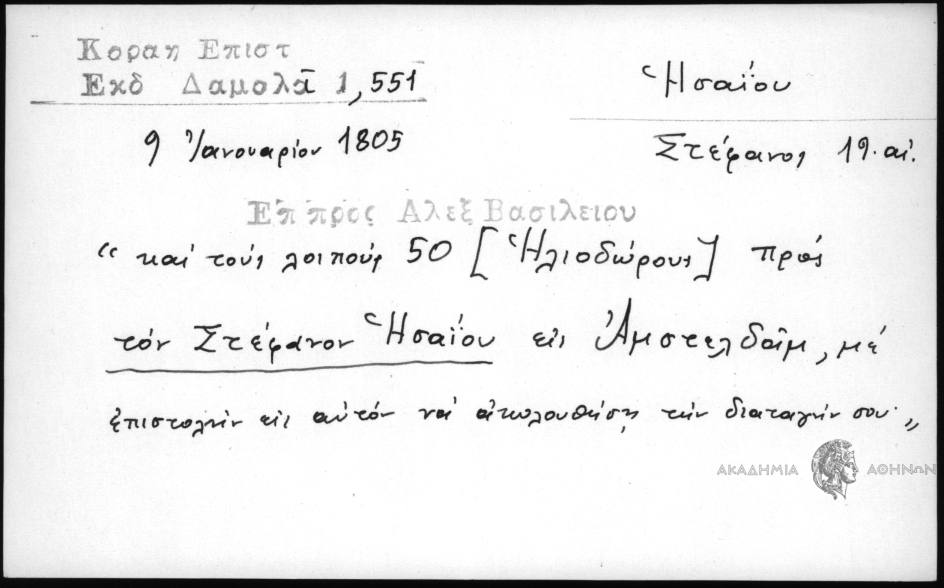 Κοραη Επιστ
Εκδ Δαμολᾶ 1,551
Ἡσαΐου
9 Ἰανουαρίου 1805
Στέφανος 19. αἰ.
Επ προς Αλεξ Βασιλειου
“ καί τούς λοιπούς 50 [Ἡλιοδώρους] πρός
τόν Στέφανον Ἡσαΐου εἰς Ἀμστελδαΐμ, μέ
ἐπιστολήν εἰς αὐτόν νά ἀκολουθήσῃ τήν διαταγήν σου· „
ΑΚΑΔΗΜΙΑ ΑΘΗΝΩΝ